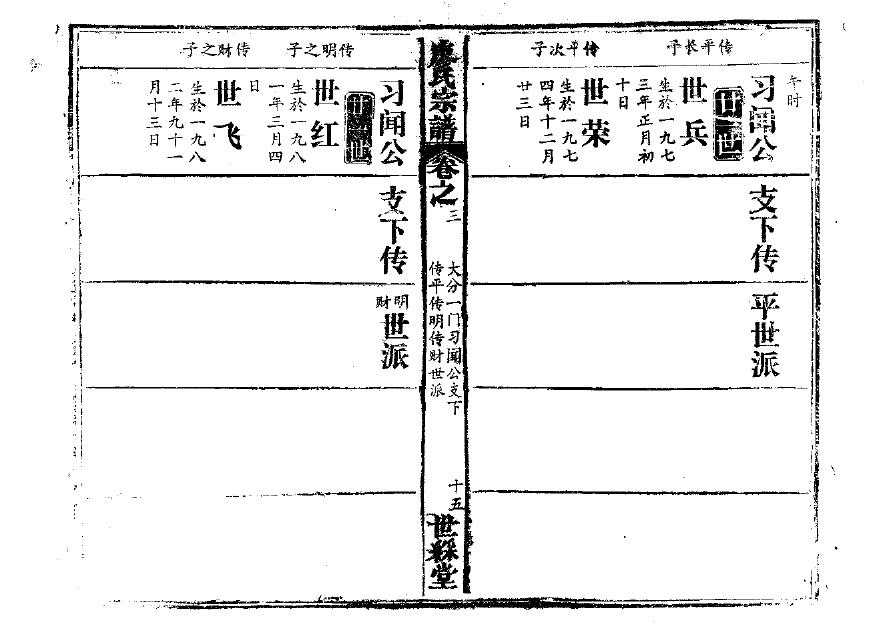 午时
习闻公支下传平世派
传平长子
世兵
生於一九七
三年正月初
十日
传平次子
世荣
生於一九七
四年十二月
廿三日
廖氏宗譜
卷之三
大分一门习闻公支下
传平传明传财世派
十五
世綵堂
习闻公支下传
明财
世派
传明之子
世红
生於一九八
一年三月四
日
传财之子
世飞
生於一九八
二年九十一
月十三日